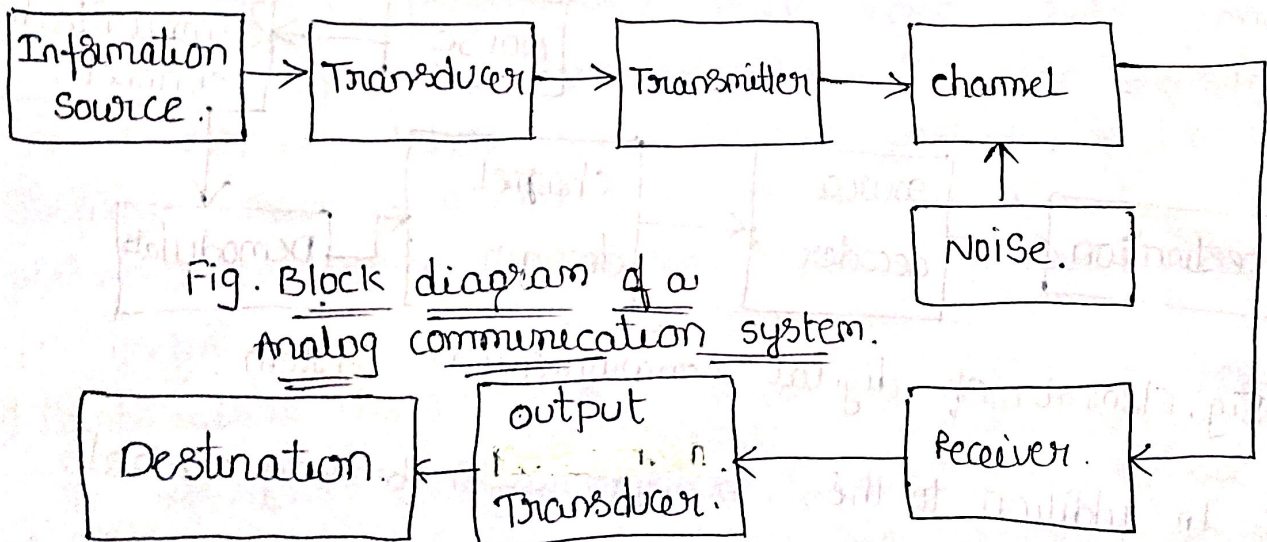 Information
source.
Transducer
Transmitter
channel
Noise.
Fig. Block diagram of a
Analog communication system.
Destination.
output
Transducer.
Receiver.